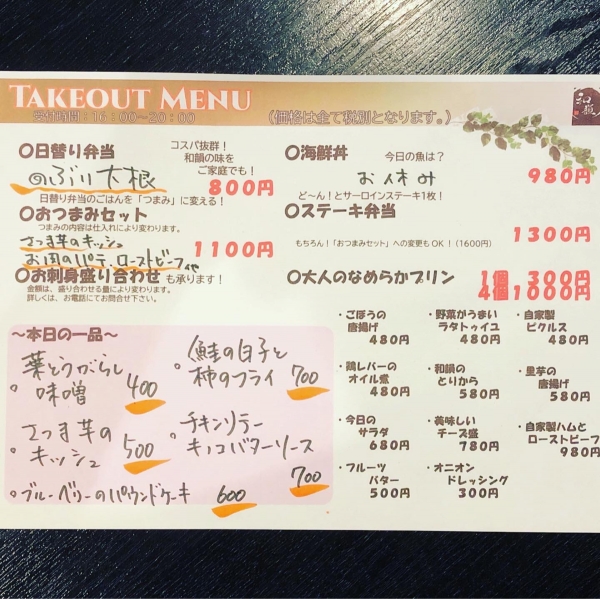 TAKEOUT MENU
受付時間：16：00~20：00
（価格は全て税別となります。）
和韻
○日替り弁当
コスパ抜群！
和韻の味を
ご家庭でも！
のぶり大根
800円
日替り弁当のごはんを「つまみ」に変える！
○おつまみセット
つまみの内容は仕入れにより変わります。
さつま芋のキッシュ
お肉のパテ、ローストビーフ他
1100円
○お刺身盛り合わせ も承ります！
金額は、盛り合わせる量により変わります。
詳しくは、お電話にてお問合せ下さい。
○海鮮丼
今日の魚は？
お休み
980円
ど～ん！とサーロインステーキ1枚！
○ステーキ弁当
1300円
もちろん！「おつまみセット」への変更もOK！（1600円）
○大人のなめらかプリン
1個 300円
4個1000円
～本日の一品～
葉とうがらし
味噌 400
・さつま芋の
キッシュ 500
・ブルーベリーのパウンドケーキ 600
・鮭の白子と
柿のフライ 700
・チキンソテー
キノコバターソース
700
・ごぼうの
唐揚げ
480円
・野菜がうまい
ラタトゥイユ
480円
・自家製
ピクルス
480円
・鶏レバーの
オイル煮
480円
・和韻の
とりから
580円
・里芋の
唐揚げ
580円
・今日の
サラダ
680円
・美味しい
チーズ盛
780円
・自家製ハムと
ローストビーフ
980円
・フルーツ
バター
500円
・オニオン
ドレッシング
300円